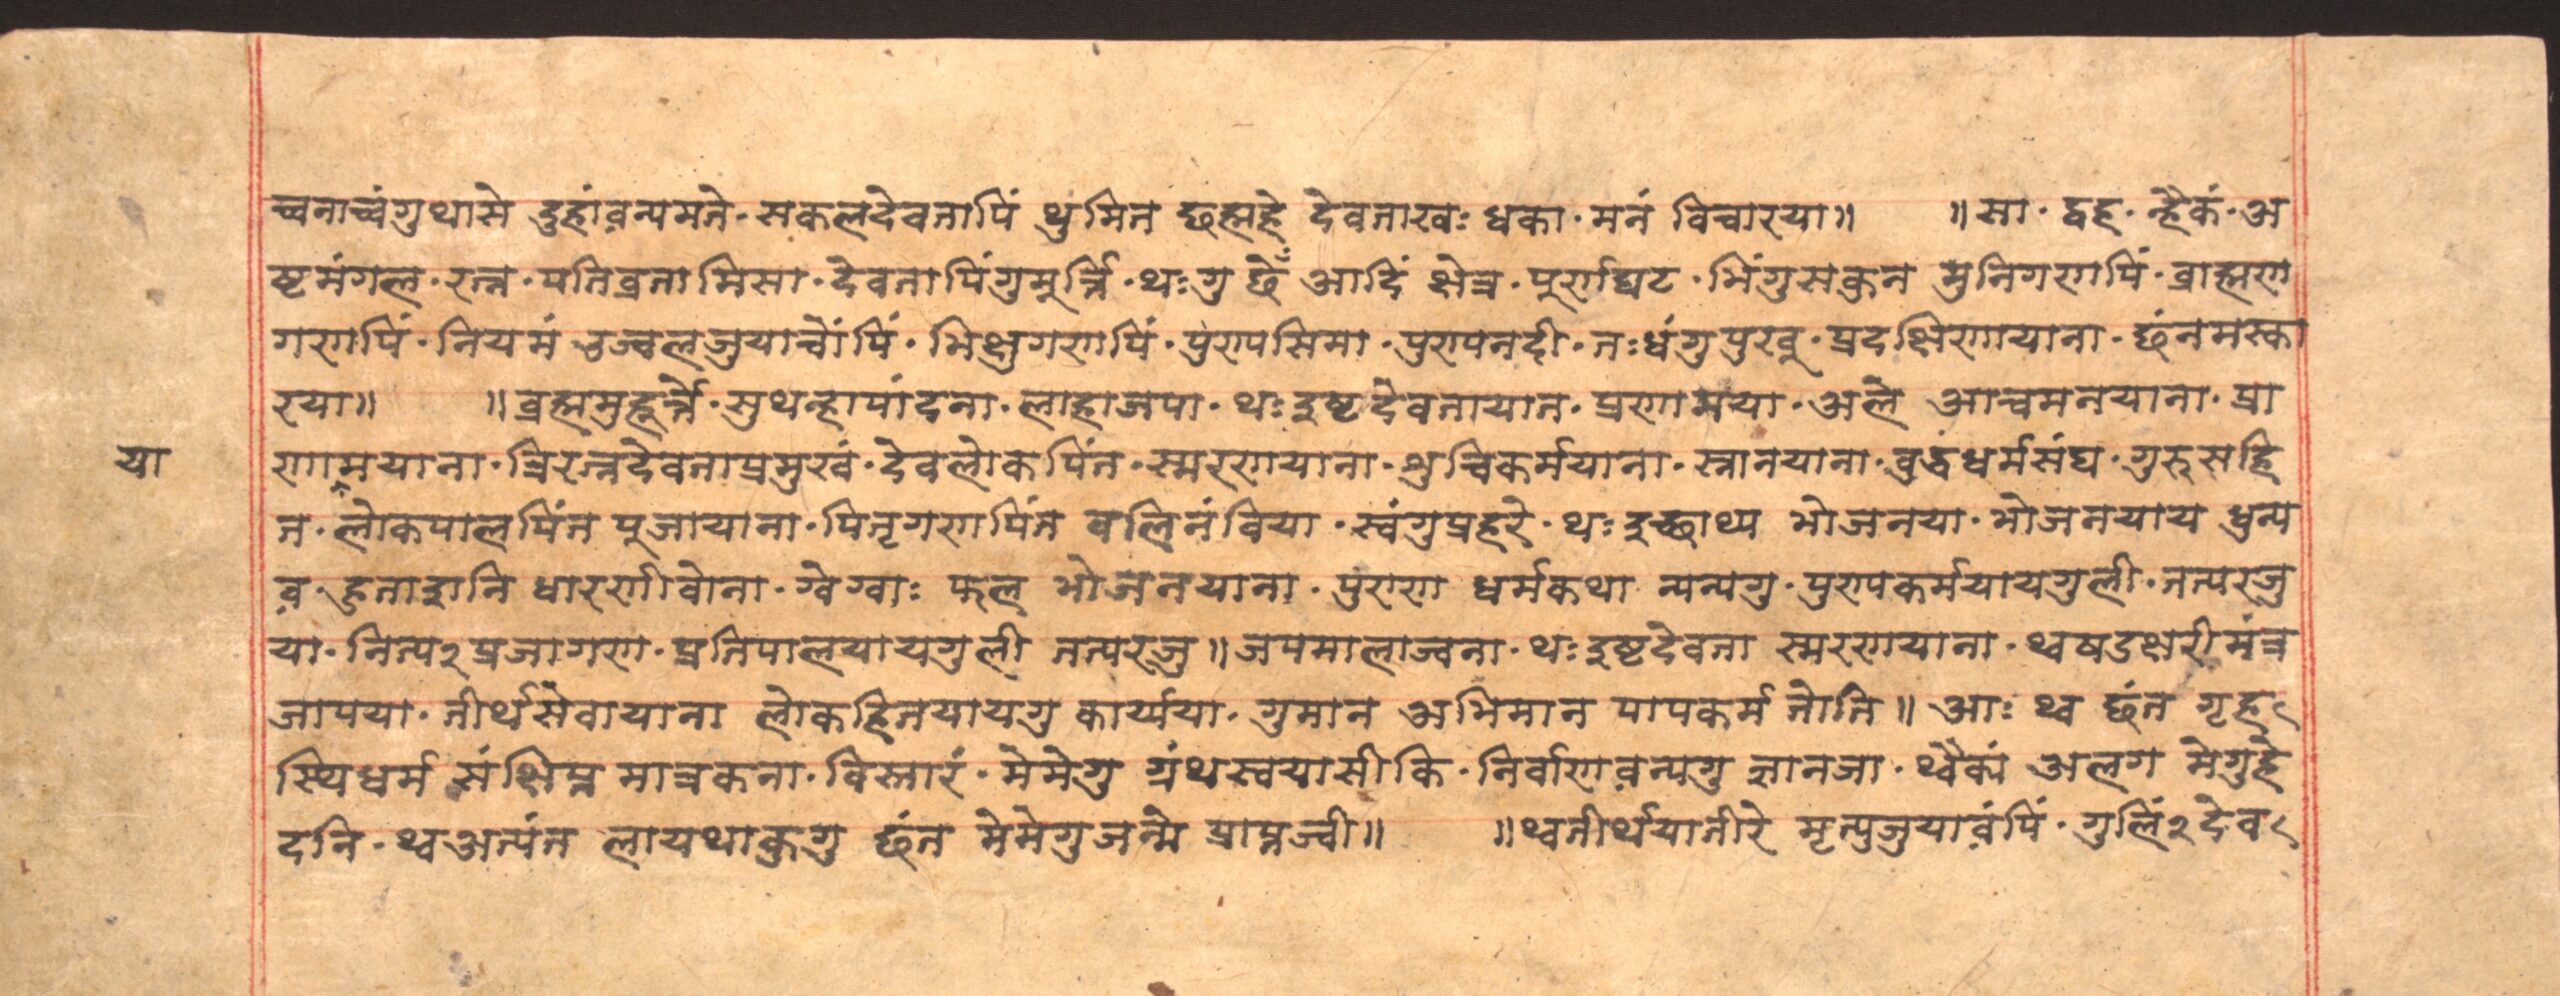 च्वनाच्वंगुथासे दुहांव़न्यमते· सकलदेवतापिं थुमित छह्महे देवताखः धका· मनं विचारया॥ ॥सा· द्वह· न्हैकं· अ
ष्टमंगल· रत्न· पतिव्रतामिसा· देवतापिंगुमूर्त्ति· थःगु छेँ आदिं क्षेत्र· पूर्णघट· भिंगुसकुन मुनिगणपिं· ब्राह्मण
गणपिं· नियमं उज्वलजुयाच्वोंपिं· भिक्षुगणपिं· पुण्यसिमा· पुण्यनदी· तःधंगुपुखू· प्रदक्षिणायाना· छंनमस्का
रया॥ ॥ब्रह्ममुहूर्त्तै· सुथन्हापांदना· लाहाजपा· थःइष्टदेवतायात· प्रणामया· अले आचमनयाना· प्रा
या
णामयाना· त्रिरत्नदेवताप्रमुखं· देवलोकपिंत· स्मरणयाना· शुचिकर्मयाना· स्नानयाना· बुद्धधर्मसंघ· गुरुसहि
त· लोकपालपिंत पूजायाना· पितृगणपिंत बलिनंविया· स्वंगुप्रहरे· थःइच्छाथ्य भोजनया· भोजनयाय धुन्य
व़· हुताशनि धारणीवोना· ग्वेग्वाः फल भोजनयाना· पुराण धर्मकथा न्यन्यगु· पुण्यकर्मयायगुली· तत्परजु
या· नित्य२ प्रजागण· प्रतिपालयायगुली तत्परजु॥ जपमालाज्वना· थःइष्टदेवता स्मरणयाना· थ्वषडक्षरीमंत्र
जापया· तीर्थसेवायाना लोकहितयायगु कार्य्यया· गुमान अभिमान पापकर्म तोति॥ आः थ्व छंत गृह
स्थिधर्म संक्षिप्त मात्रकना· विस्तारं· मेमेगु ग्रंथस्वयासीकि· निर्वाणव़न्यगु ज्ञानजा· थ्वैकां अलग मेगुहे
दनि· थ्वअत्यंत लायथाकुगु छंत मेमेगुजन्मे प्राप्तज्वी॥ ॥थ्वतीर्थयातीरे मृत्युजुयाव़ंपिं· गुलिं२देव